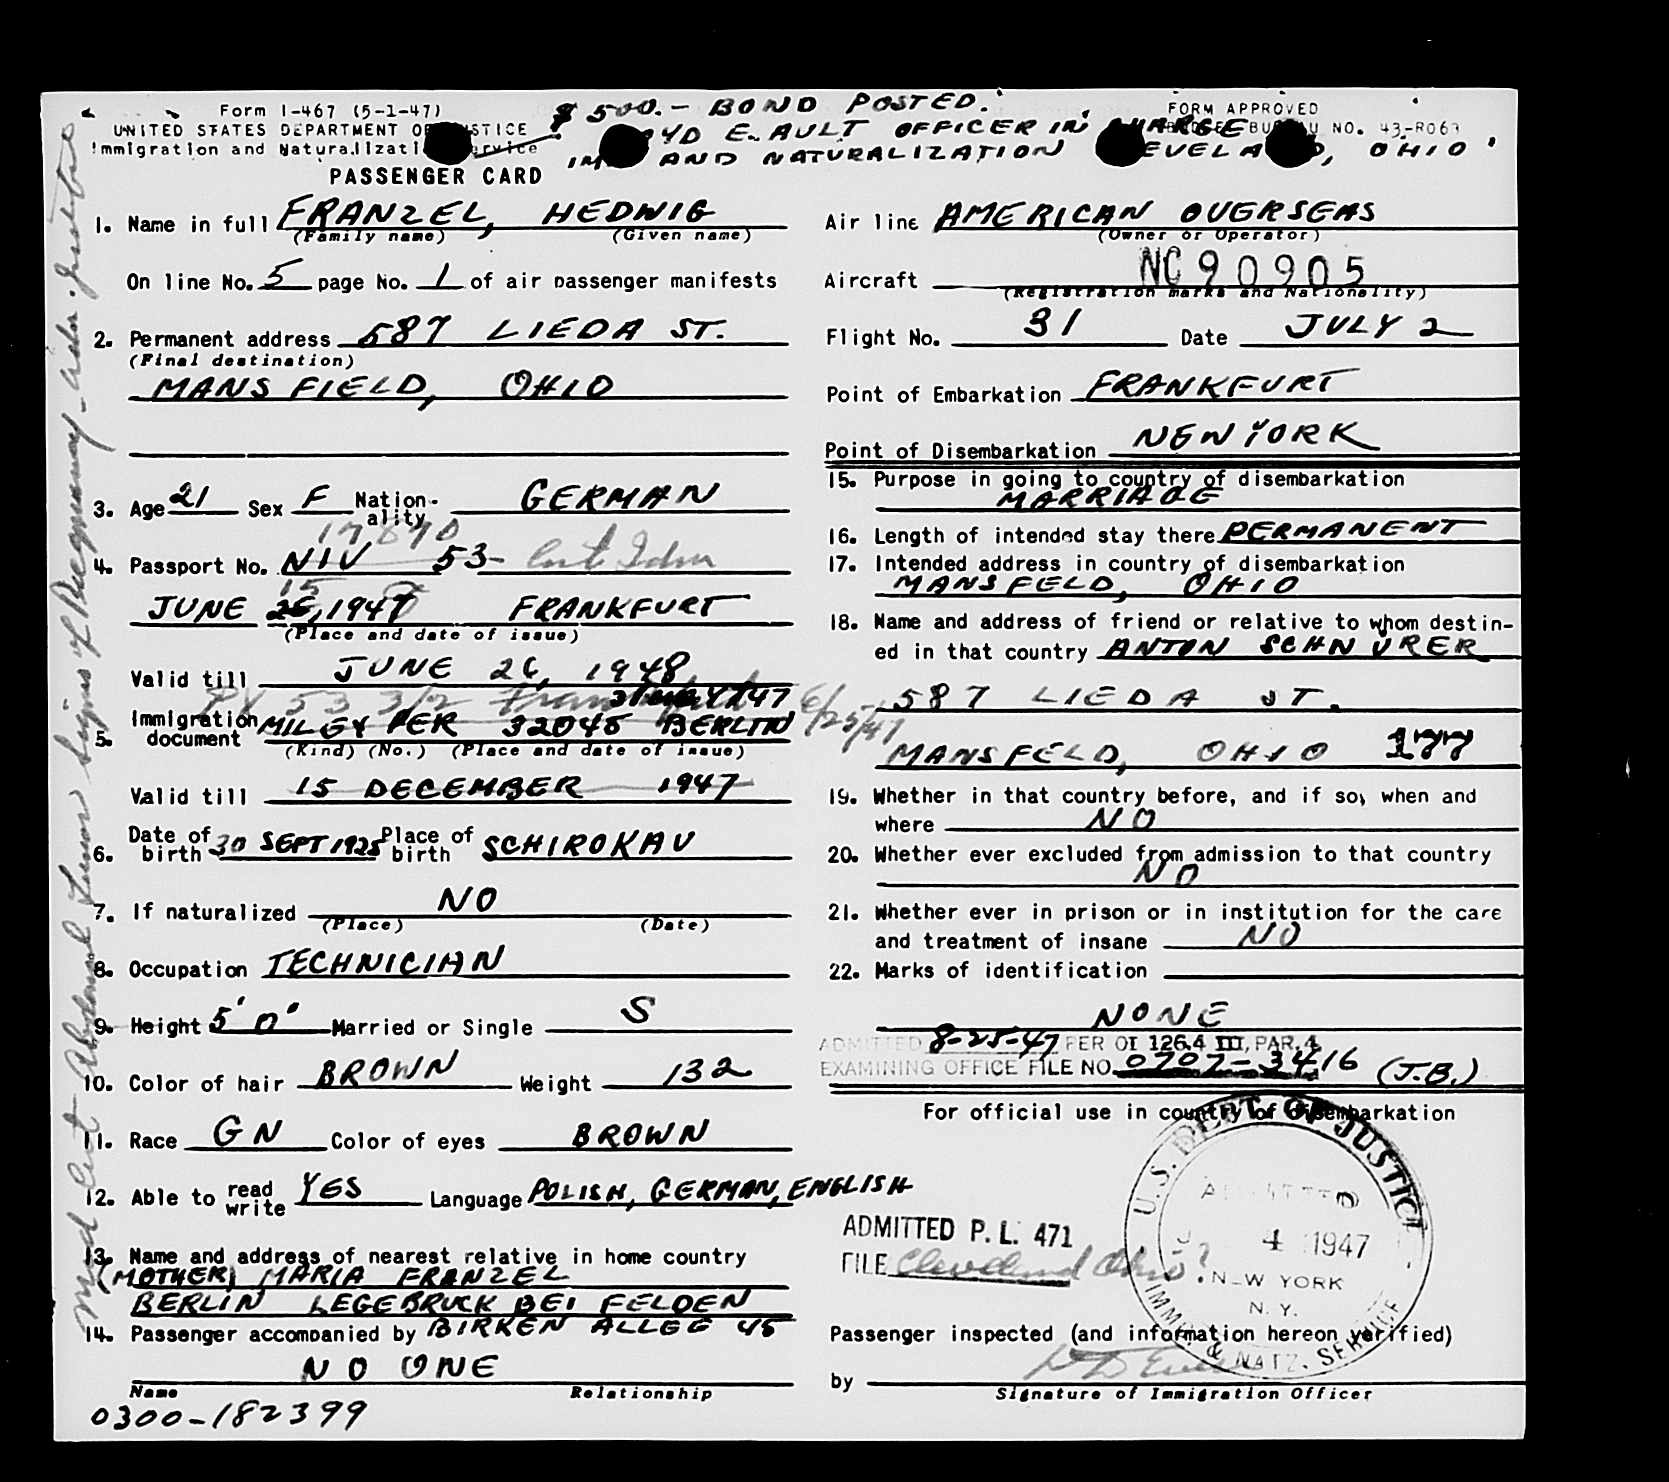 Form I-467 (5-1-47)
$ 500.- BOND POSTED.
FORM APPROVED
UNITED STATES DEPARTMENT OF JUSTICE
E. AULT OFFICER IN CHARGE
BUREAU NO. 43-R063
Immigration and Naturalization Service
AND NATURALIZATION CLEVELAND, OHIO
PASSENGER CARD
1. Name in full FRANZEL, HEDWIG
(Family name) (Given name)
On line No. 5 page No. 1 of air passenger manifests
2. Permanent address 587 LIEDA ST.
(Final destination)
MANSFIELD, OHIO
3. Age 21 Sex F Nation-ality GERMAN
17890
4. Passport No. NIV 53-
15
JUNE 26, 1947 FRANKFURT
(Place and date of issue)
Valid till JUNE 26, 1948
PV 53 3/2 31 MAY 47 6/25/47
5. Immigration document MILEX PER 32045 BERLIN
(Kind) (No.) (Place and date of issue)
Valid till 15 DECEMBER 1947
6. Date of birth 30 SEPT 1925 Place of birth SCHIROKAU
7. If naturalized NO
(Place) (Date)
8. Occupation TECHNICIAN
9. Height 5' 0" Married or Single S
10. Color of hair BROWN Weight 132
11. Race GN Color of eyes BROWN
12. Able to read write YES Language POLISH, GERMAN, ENGLISH
13. Name and address of nearest relative in home country
(MOTHER) MARIA FRANZEL
BERLIN LEGEBRUCK BEI FELDEN
BIRKEN ALLEE 45
14. Passenger accompanied by
NO ONE
Name Relationship
0300-182399
Air line AMERICAN OVERSEAS
(Owner or Operator)
Aircraft NC90905
(Registration marks and Nationality)
Flight No. 31 Date JULY 2
Point of Embarkation FRANKFURT
Point of Disembarkation NEW YORK
15. Purpose in going to country of disembarkation
MARRIAGE
16. Length of intended stay there PERMANENT
17. Intended address in country of disembarkation
MANSFELD, OHIO
18. Name and address of friend or relative to whom destin-
ed in that country ANTON SCHNURER
587 LIEDA ST.
MANSFELD, OHIO 177
19. Whether in that country before, and if so, when and
where NO
20. Whether ever excluded from admission to that country
NO
21. Whether ever in prison or in institution for the care
and treatment of insane NO
22. Marks of identification
NONE
ADMITTED 8-25-47 PER OI 126.4 III, PAR.4
EXAMINING OFFICE FILE NO. 0707-3416 (J.B.)
For official use in country of Disembarkation
U.S. DEPT. OF JUSTICE
ADMITTED
4 1947
NEW YORK
N.Y.
IMM. & NATZ. SERVICE
ADMITTED P. L. 471
FILE Cleveland Ohio
Passenger inspected (and information hereon verified)
by
Signature of Immigration Officer
Med Cert Abdominal Tumor Signs of Pregnancy